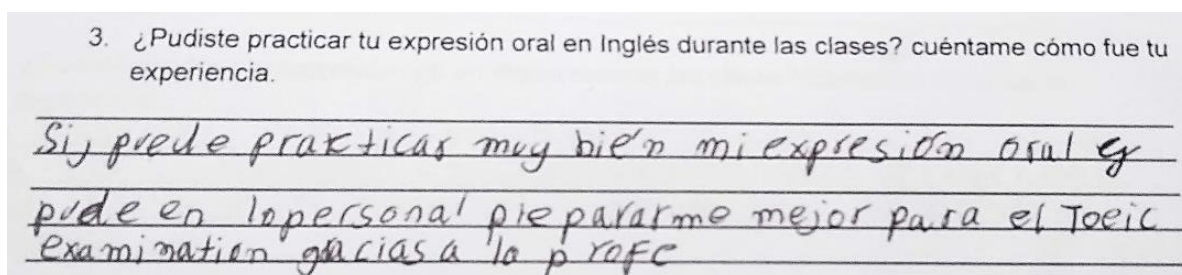 3. ¿Pudiste practicar tu expresión oral en Inglés durante las clases? cuéntame cómo fue tu
experiencia.
Si, puede prakticar muy bién mi expresión oral y
pude en lo personal prepararme mejor para el Toeic
examination gracias a la profe